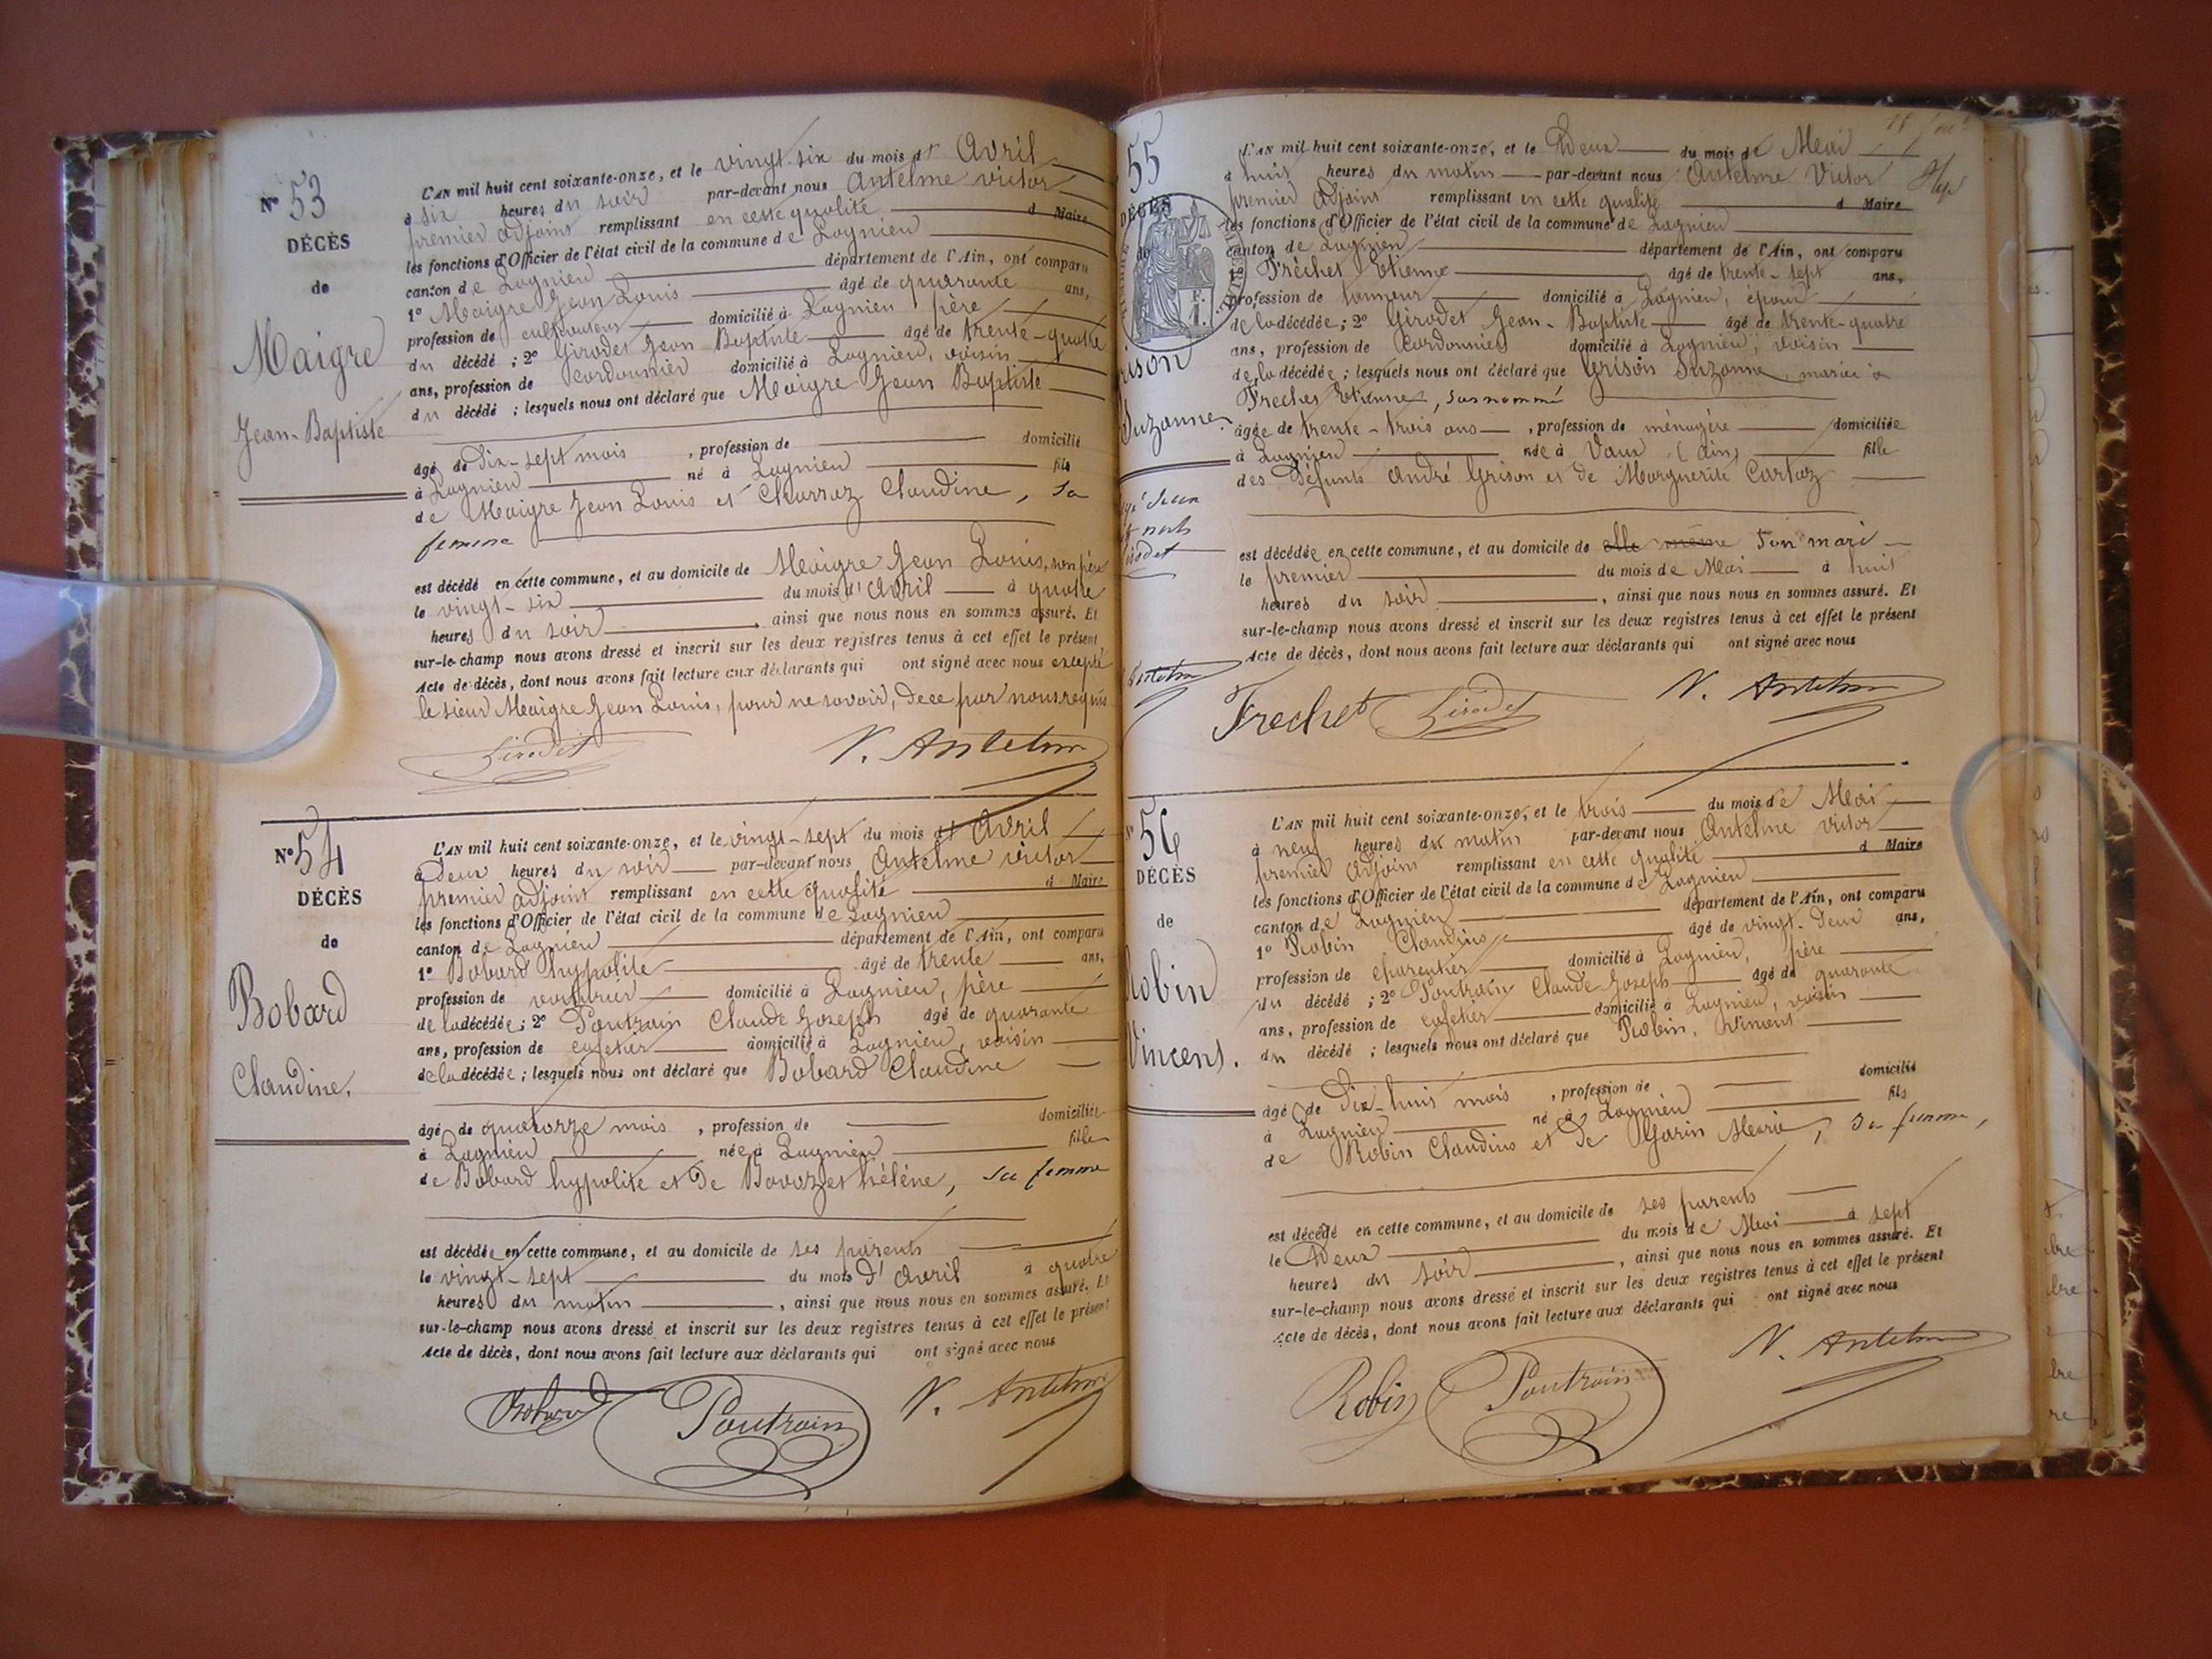 N° 53
DÉCÈS
de
Maigre
Jean-Baptiste
L'AN mil huit cent soixante-onze, et le vingt-six du mois d' Avril
à six heures du soir par-devant nous Antelme Victor
premier adjoint remplissant en cette qualité d Maire
les fonctions d'Officier de l'état civil de la commune de Lagnieu
canton de Lagnieu département de l'Ain, ont comparu
1° Maigre Jean Louis âgé de quarante ans,
profession de cultivateur domicilié à Lagnieu père
du décédé ; 2° Girodet Jean Baptiste âgé de trente-quatre
ans, profession de cordonnier domicilié à Lagnieu, voisin
du décédé ; lesquels nous ont déclaré que Maigre Jean Baptiste
âgé de dix-sept mois , profession de domicilié
à Lagnieu né à Lagnieu fils
de Maigre Jean Louis et Charraz Claudine, sa
femme
est décédé en cette commune, et au domicile de Maigre Jean Louis, son père
le vingt-six du mois d' Avril à quatre
heures du soir , ainsi que nous nous en sommes assuré. Et
sur-le-champ nous avons dressé et inscrit sur les deux registres tenus à cet effet le présent
Acte de décès, dont nous avons fait lecture aux déclarants qui ont signé avec nous excepté
le sieur Maigre Jean Louis, pour ne savoir, de ce par nous requis
Girodet V. Antelme
N° 54
DÉCÈS
de
Bobard
Claudine.
L'AN mil huit cent soixante-onze, et le vingt-sept du mois d' Avril
à Deux heures du soir par-devant nous Antelme Victor
premier adjoint remplissant en cette qualité d Maire
les fonctions d'Officier de l'état civil de la commune de Lagnieu
canton de Lagnieu département de l'Ain, ont comparu
1° Bobard hypolite âgé de trente ans,
profession de voiturier domicilié à Lagnieu, père
de la décédée ; 2° Poutrain Claude Joseph âgé de quarante
ans, profession de cafetier domicilié à Lagnieu, voisin
de la décédée ; lesquels nous ont déclaré que Bobard Claudine
âgé de quatorze mois , profession de domiciliée
à Lagnieu née à Lagnieu fille
de Bobard hypolite et de Bovozet hélène, sa femme
est décédée en cette commune, et au domicile de ses parents
le vingt-sept du mois d' Avril à quatre
heures du matin , ainsi que nous nous en sommes assuré. Et
sur-le-champ nous avons dressé et inscrit sur les deux registres tenus à cet effet le présent
Acte de décès, dont nous avons fait lecture aux déclarants qui ont signé avec nous
Bobard Poutrain V. Antelme
55
DÉCÈS
de
rison
Suzanne.
L'AN mil huit cent soixante-onze, et le Deux du mois de Mai
à huit heures du matin par-devant nous Antelme Victor
premier adjoint remplissant en cette qualité d Maire
les fonctions d'Officier de l'état civil de la commune de Lagnieu
canton de Lagnieu département de l'Ain, ont comparu
1° Fréchet Etienne âgé de trente-sept ans,
profession de tanneur domicilié à Lagnieu, époux
de la décédée ; 2° Girodet Jean-Baptiste âgé de trente-quatre
ans, profession de cordonnier domicilié à Lagnieu, voisin
de la décédée ; lesquels nous ont déclaré que Grison Suzanne, mariée à
Frechet Etienne, susnommé
âgée de trente-trois ans , profession de ménagère domiciliée
à Lagnieu née à Vaux (Ain) fille
des défunts André Grison et de Marguerite Cartaz
est décédée en cette commune, et au domicile de elle même son mari
le premier du mois de Mai à huit
heures du soir , ainsi que nous nous en sommes assuré. Et
sur-le-champ nous avons dressé et inscrit sur les deux registres tenus à cet effet le présent
Acte de décès, dont nous avons fait lecture aux déclarants qui ont signé avec nous
Frechet Girodet V. Antelme
56
DÉCÈS
de
Robin
Vincent.
L'AN mil huit cent soixante-onze, et le trois du mois de Mai
à neuf heures du matin par-devant nous Antelme Victor
premier adjoint remplissant en cette qualité d Maire
les fonctions d'Officier de l'état civil de la commune de Lagnieu
canton de Lagnieu département de l'Ain, ont comparu
1° Robin Claudius âgé de vingt-deux ans,
profession de charpentier domicilié à Lagnieu, père
du décédé ; 2° Poutrain Claude Joseph âgé de quarante
ans, profession de cafetier domicilié à Lagnieu, voisin
du décédé ; lesquels nous ont déclaré que Robin, Vincent
âgé de Dix-huit mois , profession de domicilié
à Lagnieu né à Lagnieu fils
de Robin Claudius et de Garin Marie, sa femme,
est décédé en cette commune, et au domicile de ses parents
le Deux du mois de Mai à sept
heures du soir , ainsi que nous nous en sommes assuré. Et
sur-le-champ nous avons dressé et inscrit sur les deux registres tenus à cet effet le présent
Acte de décès, dont nous avons fait lecture aux déclarants qui ont signé avec nous
Robin Poutrain V. Antelme